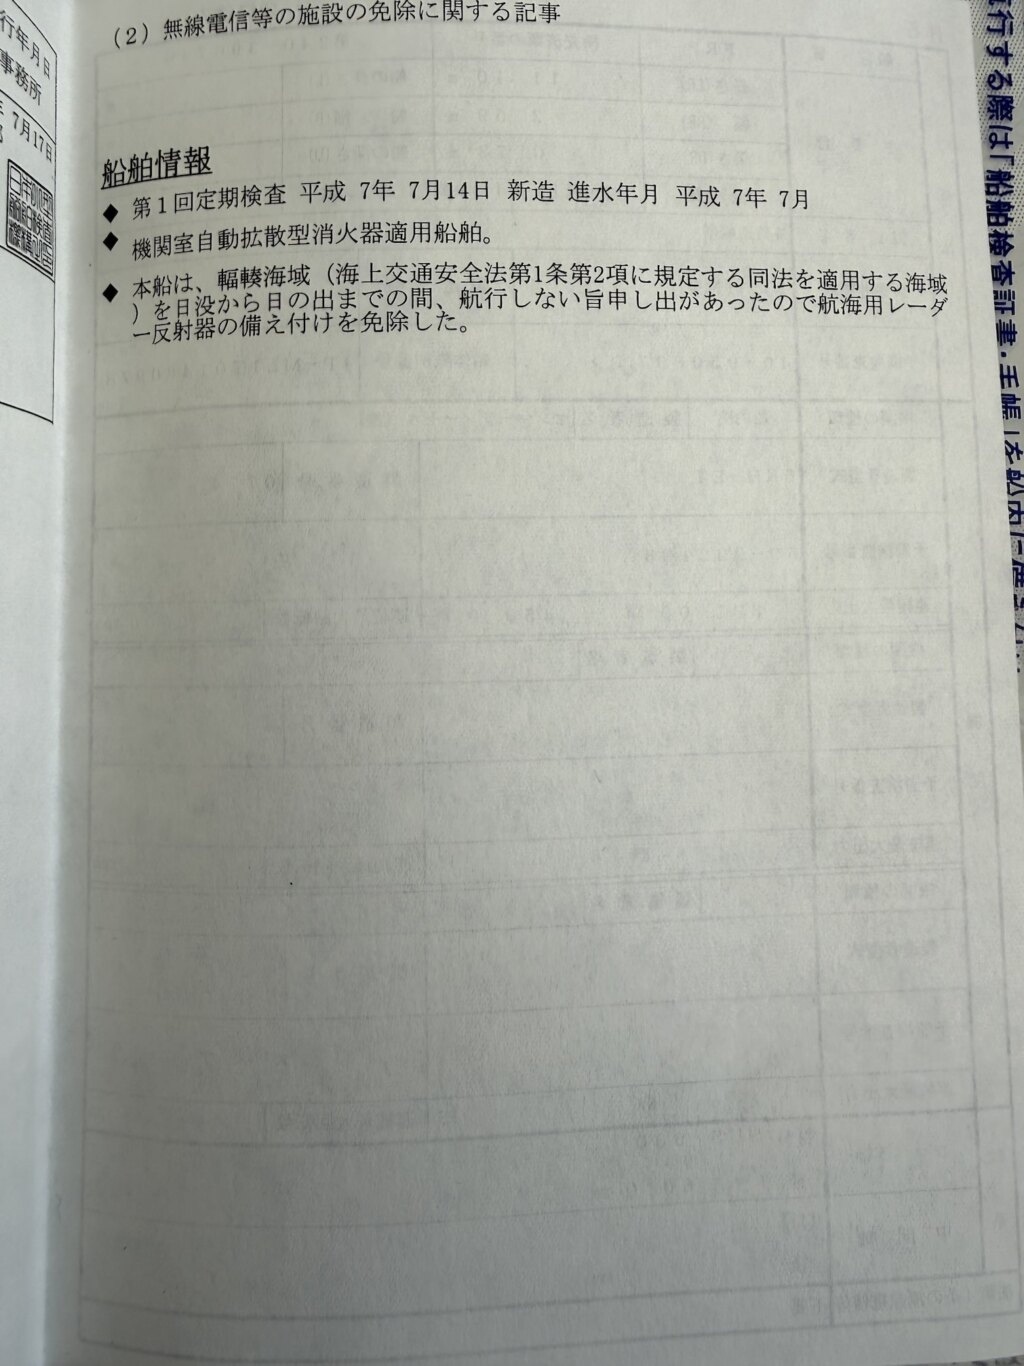 (2) 無線電信等の施設の免除に関する記事
行年月日
事務所
7月17日
船舶情報
◆ 第1回定期検査 平成 7年 7月14日 新造 進水年月 平成 7年 7月
◆ 機関室自動拡散型消火器適用船舶。
◆ 本船は、輻輳海域（海上交通安全法第1条第2項に規定する同法を適用する海域
）を日没から日の出までの間、航行しない旨申し出があったので航海用レーダ
ー反射器の備え付けを免除した。
行する際は「船舶検査証書・手帳」を船内に